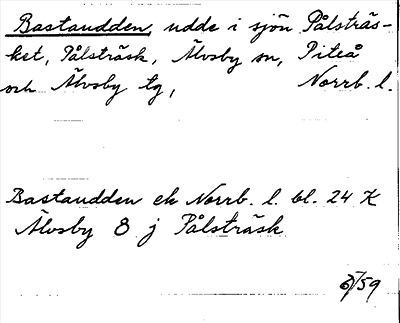 Bastaudden, udde i sjön Pålsträs-
ket, Pålsträsk, Älvsby sn, Piteå
och Älvsby tg, Norrb. l.
Bastaudden ek Norrb. l. bl. 24 K
Älvsby 8 j Pålsträsk